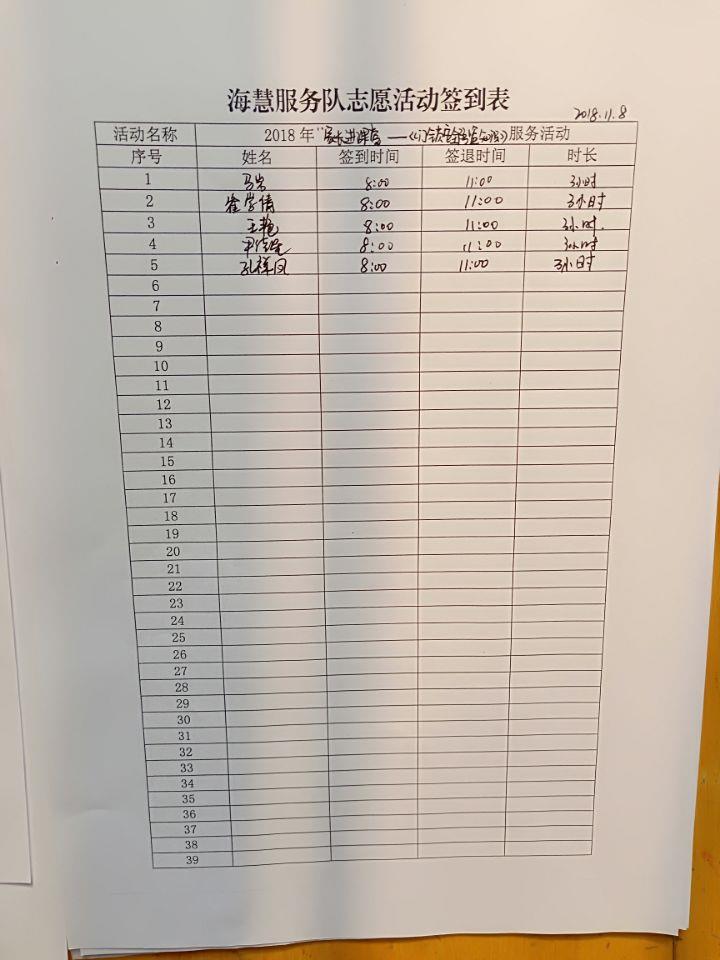 海慧服务队志愿活动签到表
2018.11.8
活动名称 2018年"家长进课堂——服务活动
序号 姓名 签到时间 签退时间 时长
1 马岩 8:00 11:00 3小时
2 崔学倩 8:00 11:00 3小时
3 王艳 8:00 11:00 3小时.
4 8:00 11:00 3小时
5 孔祥凤 8:00 11:00 3小时
6
7
8
9
10
11
12
13
14
15
16
17
18
19
20
21
22
23
24
25
26
27
28
29
30
31
32
33
34
35
36
37
38
39